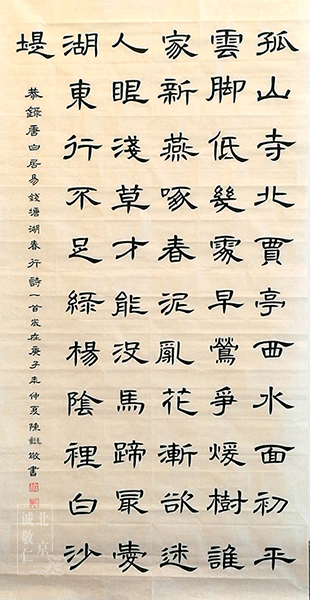 孤山寺北賈亭西水面初平
雲脚低幾處早鶯爭煖樹誰
家新燕啄春泥亂花漸欲迷
人眼淺草才能沒馬蹄最愛
湖東行不足綠楊陰裡白沙
堤
恭錄唐白居易錢塘湖春行詩一首歲在庚子年仲夏陳敬書
北京
诚敬仁